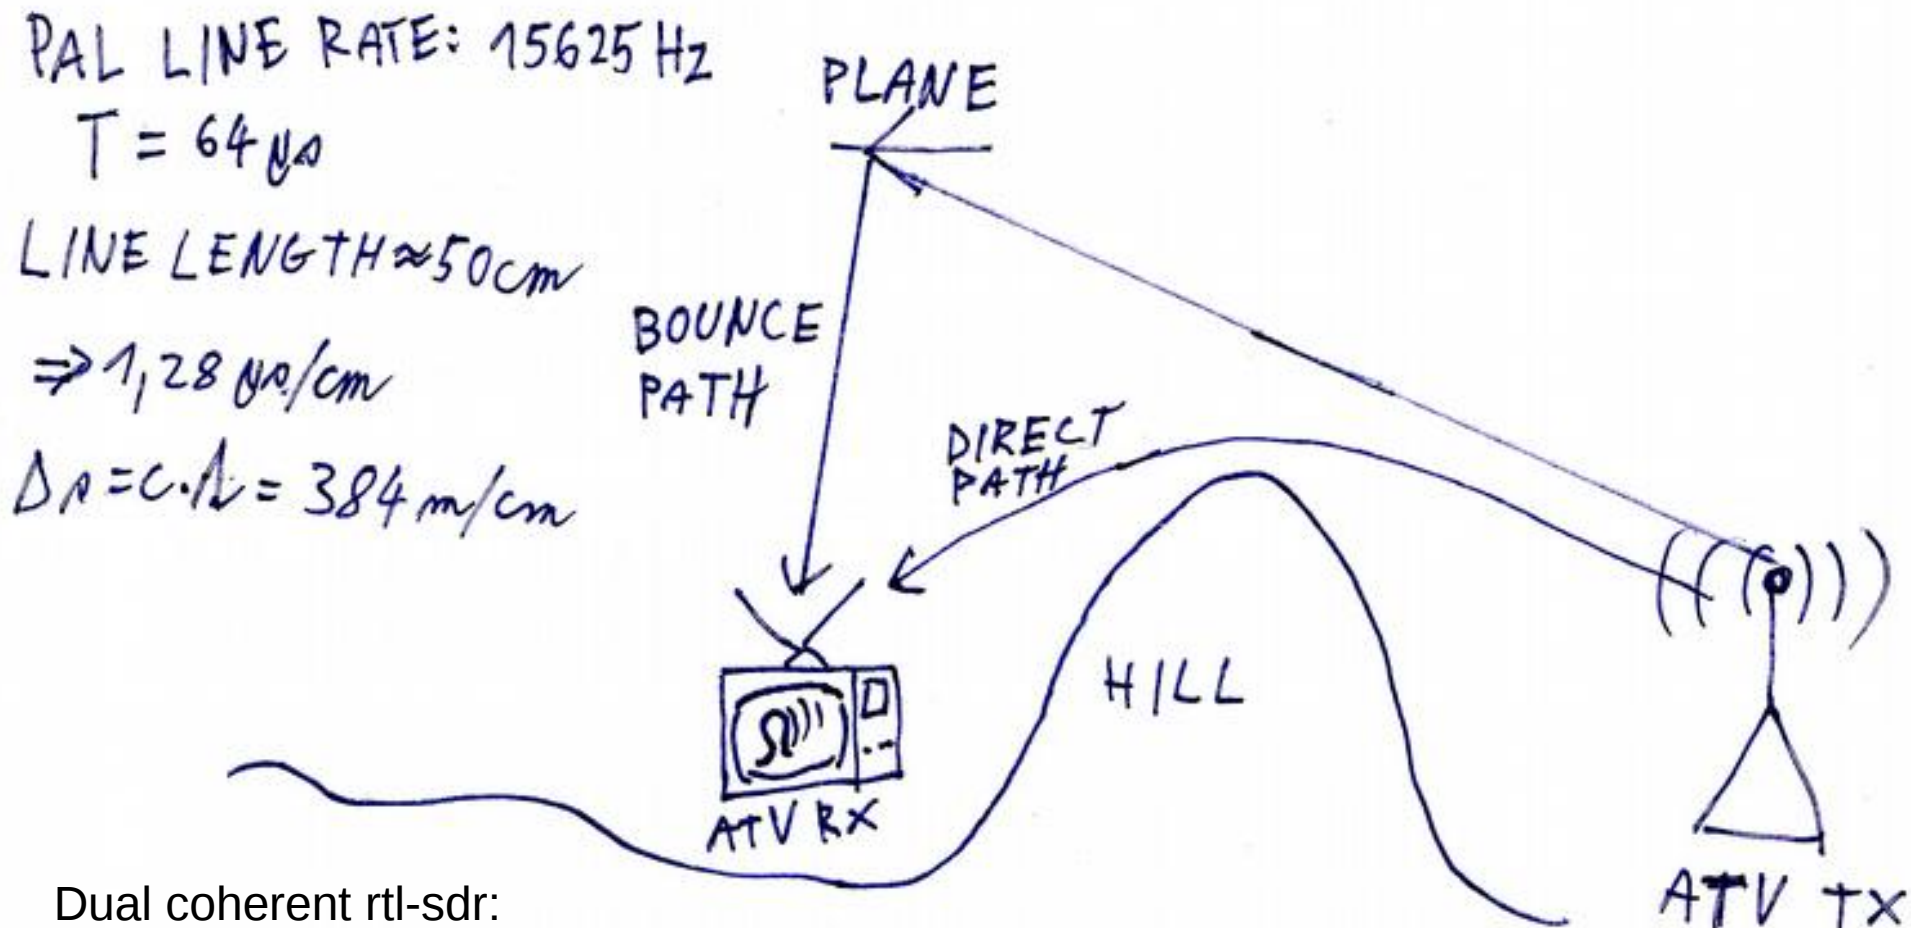 PAL LINE RATE: 15625 Hz
T = 64 µs
LINE LENGTH ≈ 50 cm
⇒ 1,28 µs/cm
Δs = c·t = 384 m/cm
PLANE
BOUNCE
PATH
DIRECT
PATH
HILL
ATV RX
ATV TX
Dual coherent rtl-sdr: